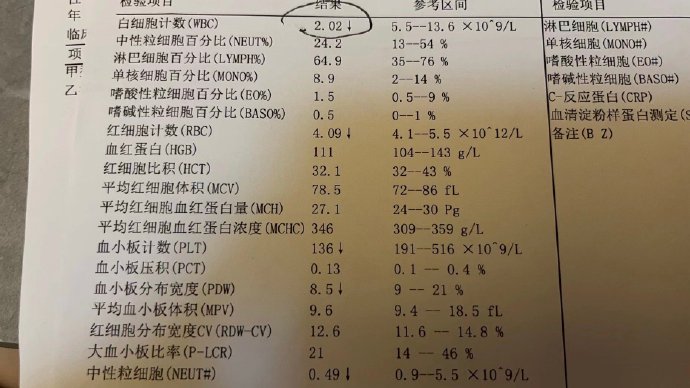 检验项目 结果 参考区间 检验项目
白细胞计数(WBC) 2.02↓ 5.5--13.6 ×10^9/L 淋巴细胞(LYMPH#)
中性粒细胞百分比(NEUT%) 24.2 13--54 % 单核细胞(MONO#)
淋巴细胞百分比(LYMPH%) 64.9 35--76 % 嗜酸性粒细胞(EO#)
单核细胞百分比(MONO%) 8.9 2--14 % 嗜碱性粒细胞(BASO#)
嗜酸性粒细胞百分比(EO%) 1.5 0.5--9 % C-反应蛋白(CRP)
嗜碱性粒细胞百分比(BASO%) 0.5 0--1 % 血清淀粉样蛋白测定(S
红细胞计数(RBC) 4.09↓ 4.1--5.5 ×10^12/L 备注(B Z)
血红蛋白(HGB) 111 104--143 g/L
红细胞比积(HCT) 32.1 32--43 %
平均红细胞体积(MCV) 78.5 72--86 fL
平均红细胞血红蛋白量(MCH) 27.1 24--30 Pg
平均红细胞血红蛋白浓度(MCHC) 346 309--359 g/L
血小板计数(PLT) 136↓ 191--516 ×10^9/L
血小板压积(PCT) 0.13 0.1 -- 0.4 %
血小板分布宽度(PDW) 8.5↓ 9 -- 21 %
平均血小板体积(MPV) 9.6 9.4 -- 18.5 fL
红细胞分布宽度CV(RDW-CV) 12.6 11.6 -- 14.8 %
大血小板比率(P-LCR) 21 14 -- 46 %
中性粒细胞(NEUT#) 0.49↓ 0.9--5.5 ×10^9/L
年
临床
项
甲
乙